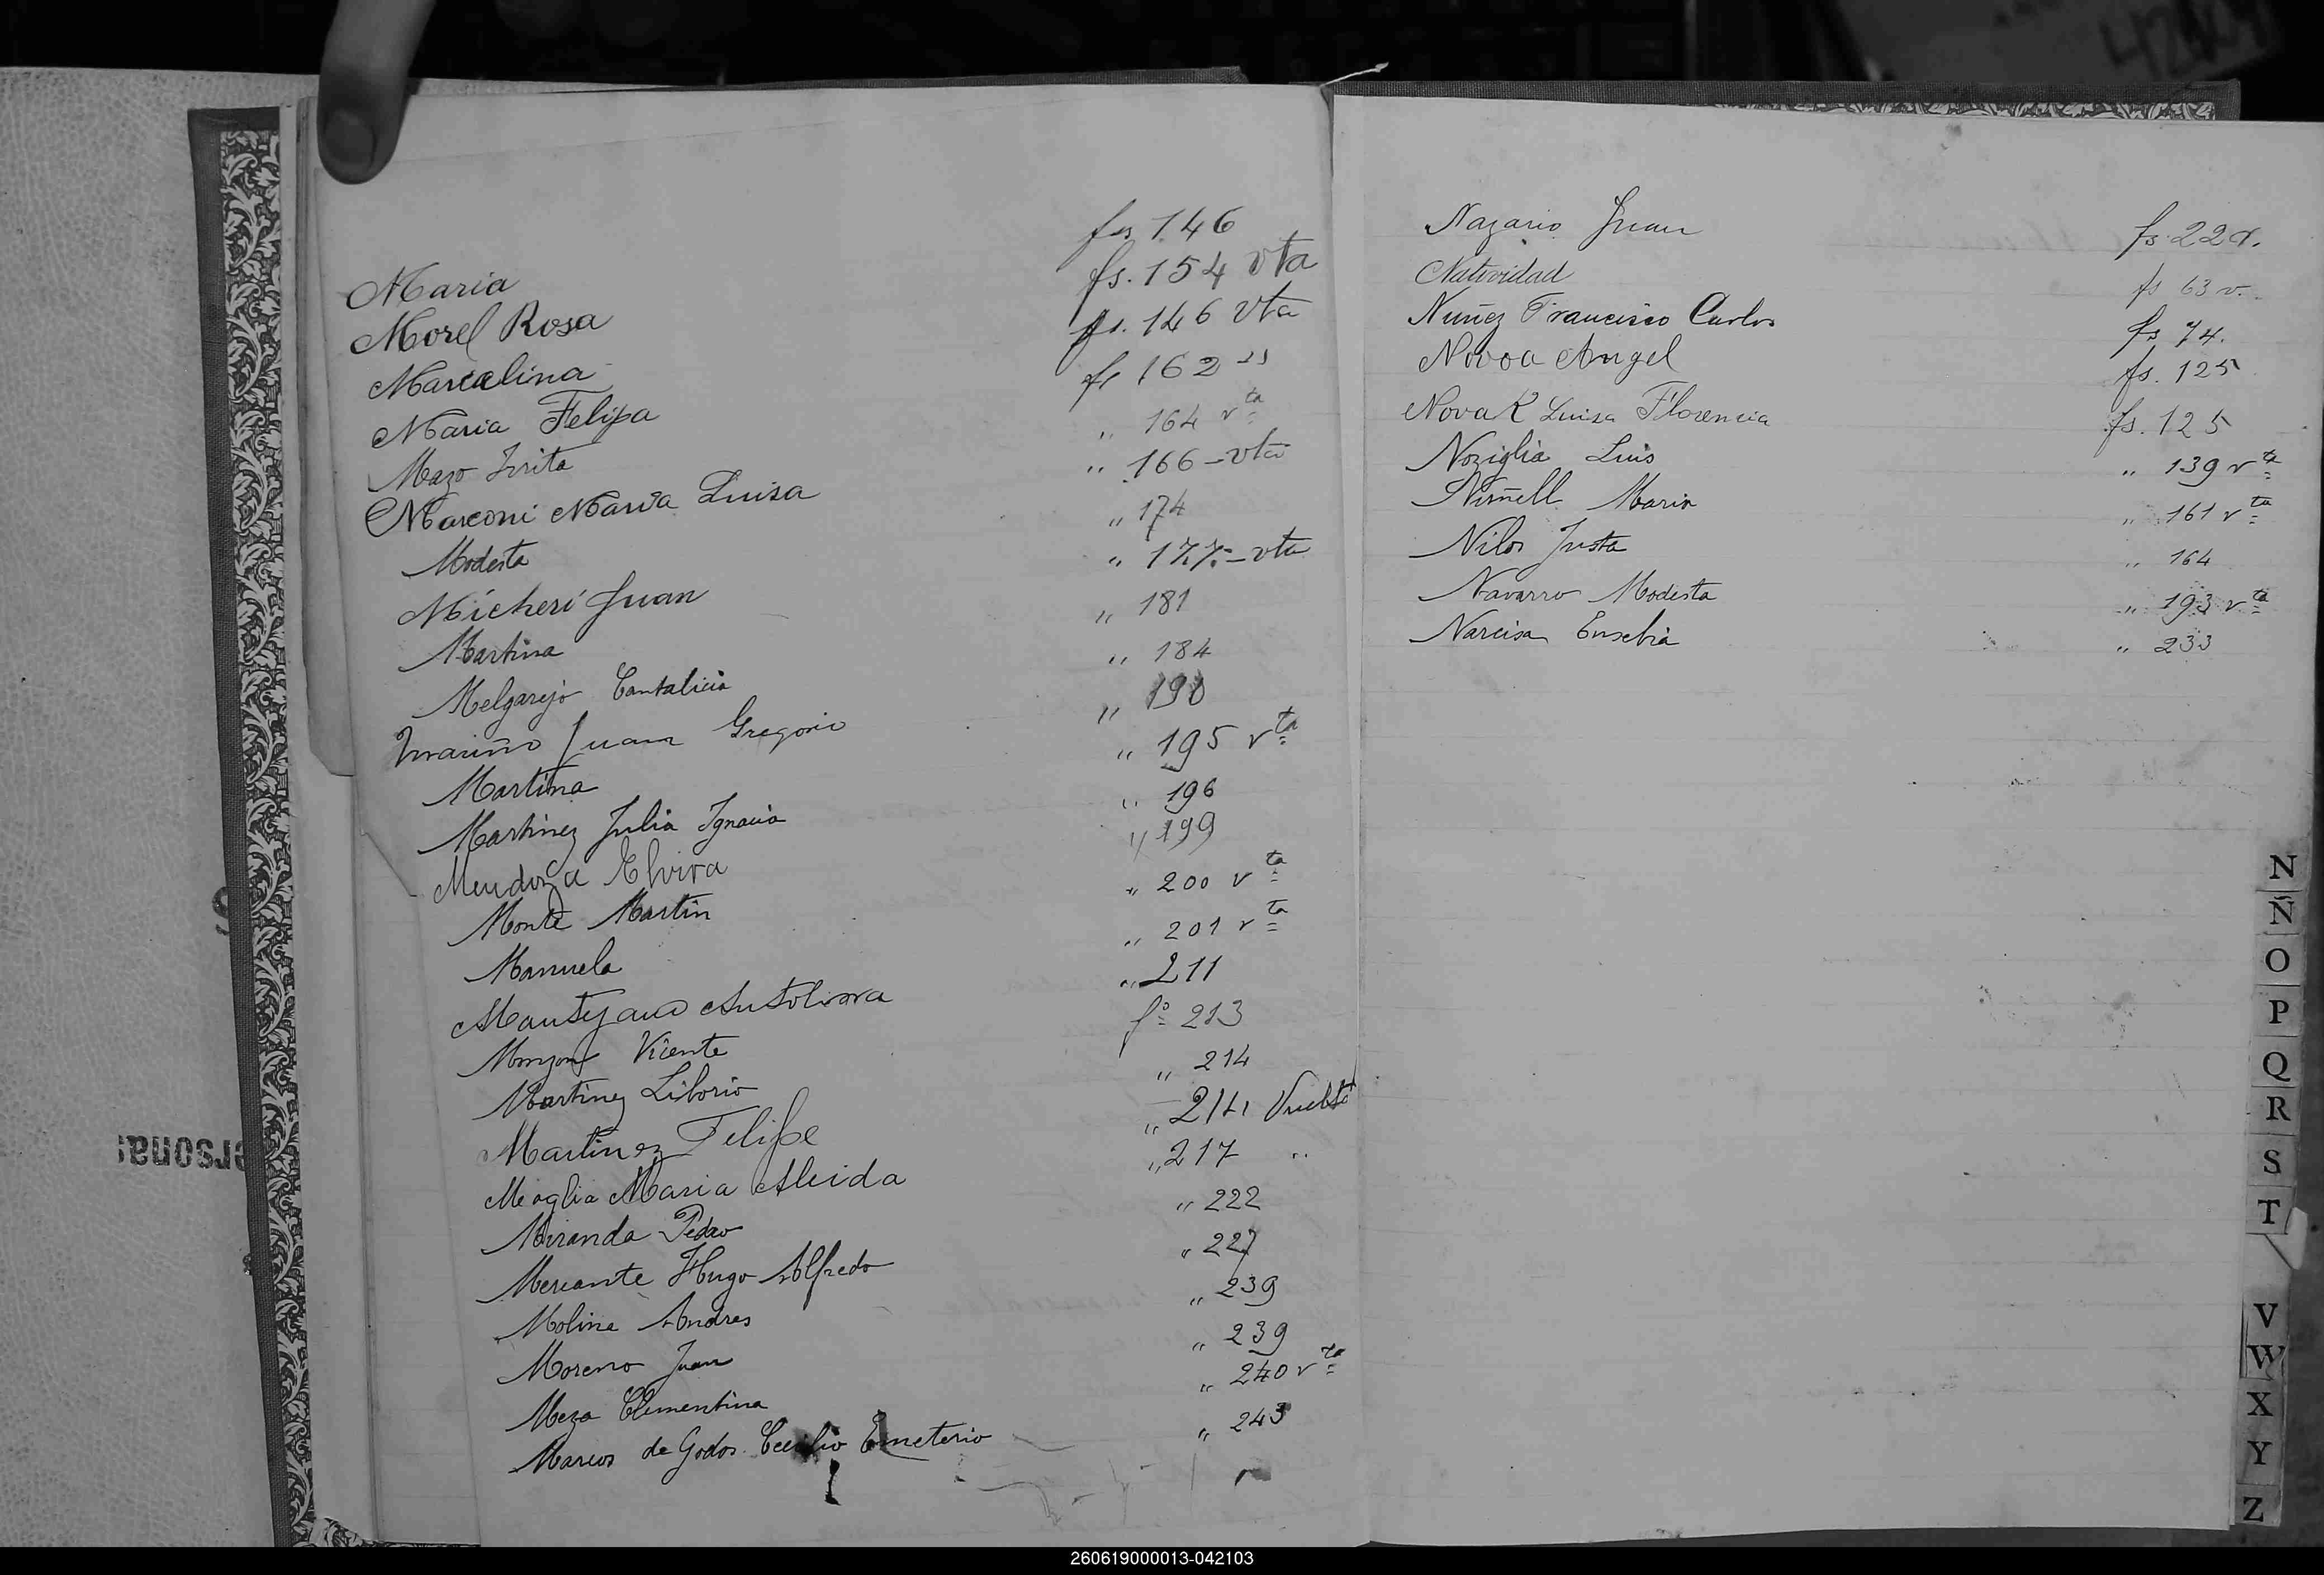 Maria fs 146
Morel Rosa fs. 154 vta
Marcelina fs. 146 vta
Maria Felipa fs 162 "
Mazo Irrita " 164 vta
Marconi Maria Luisa " 166-vta
Modesta " 174
Micheri Juan " 177-vta
Martina " 181
Melgarejo Cantalicia " 184
Mariño Juan Gregorio " 190
Martina " 195 vta
Martinez Julia Ignacia " 196
Mendoza Elvira " 199
Monte Martin " 200 vta
Manuela " 201 vta
" 211
Monzon Vicente fº 213
Martinez Liborio " 214
Martinez Felipe " 214 Vuelta
Meaglia Maria Aleida " 217 "
Miranda Pedro " 222
Mercante Hugo Alfredo " 227
Molina Andres " 239
Moreno Juan " 239
Meza Clementina " 240 vta
Marcos de Godos Cecilio Emeterio " 243
Nazario Juan fs. 22v.
Natividad fs 63 v.
Nuñez Francisco Carlos fs 74.
Novoa Angel fs. 125
Novak Luisa Florencia fs. 125
Noziglia Luis " 139 vta
Maria " 161 vta
Nilos Justa " 164
Navarro Modesta " 193 vta
Narcisa Eusebia " 233
N
Ñ
O
P
Q
R
S
T
V
W
X
Y
Z
260619000013-042103